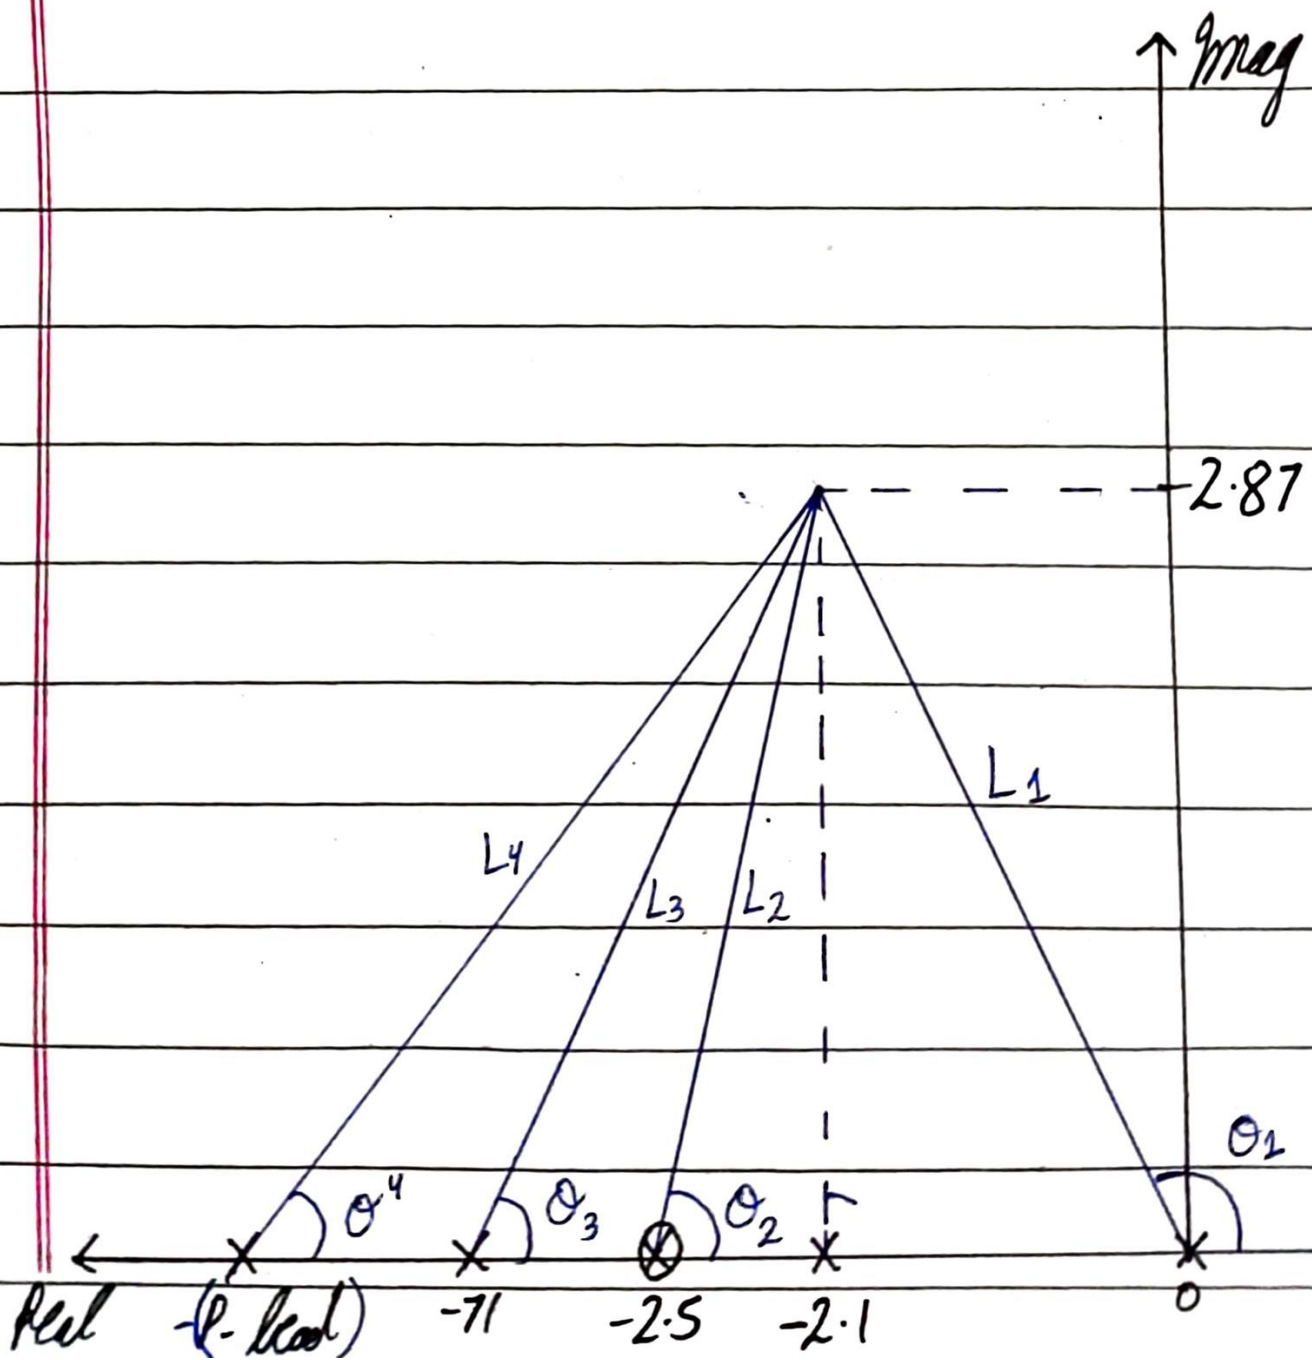 Imag
2.87
L1
L4
L3 L2
θ1
θ4 θ3 θ2
Real -(P-lead) -71 -2.5 -2.1 0